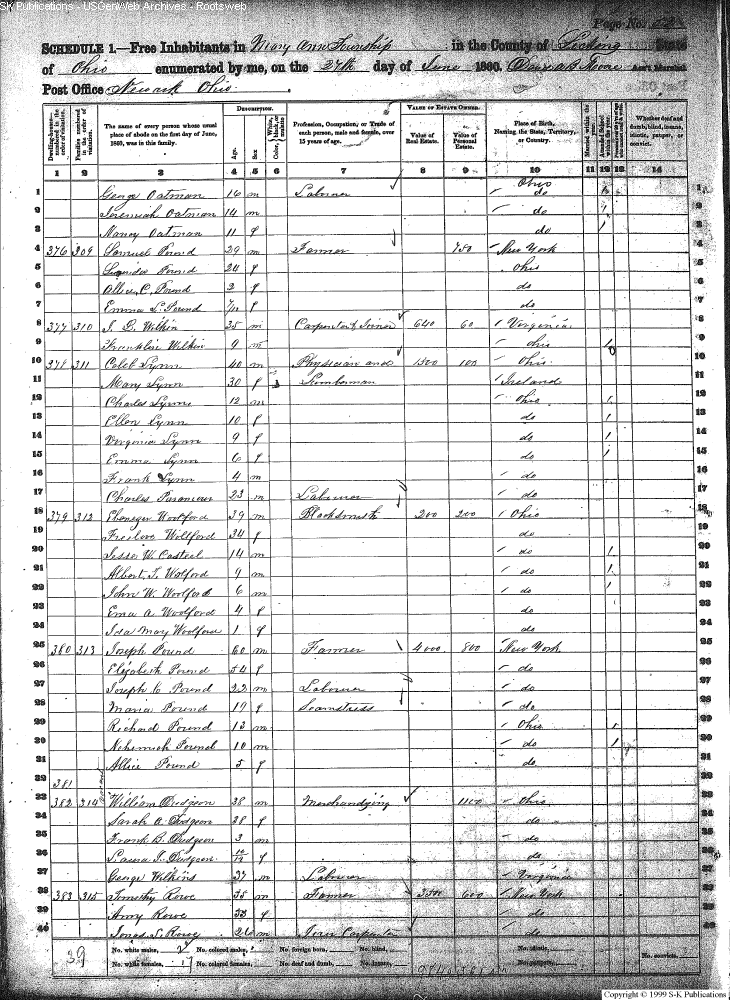 S-K Publications - USGenWeb Archives - Rootsweb
Page No.
SCHEDULE 1.—Free Inhabitants in Mary Ann Township in the County of Licking State
of Ohio enumerated by me, on the 27th day of June 1860. Ass't Marshal.
Post Office Newark Ohio.
Dwelling-houses— numbered in the order of visitation. Families numbered in the order of visitation. The name of every person whose usual place of abode on the first day of June, 1860, was in this family. DESCRIPTION. Age. Sex Color, White, black, or mulatto Profession, Occupation, or Trade of each person, male and female, over 15 years of age. VALUE OF ESTATE OWNED. Value of Real Estate. Value of Personal Estate. Place of Birth, Naming the State, Territory, or Country. Married within the year. Attended School within the year. Whether deaf and dumb, blind, insane, idiotic, pauper, or convict.
1 2 3 4 5 6 7 8 9 10 11 12 13 14
1 George Oatman 16 m Laborer Ohio do 1
2 Jeremiah Oatman 14 m do 2
3 Nancy Oatman 11 f do 3
4 376 309 Samuel Pound 29 m Farmer 750 New York 4
5 Pound 24 f Ohio 5
6 Allice C. Pound 2 f do 6
7 Emma L. Pound f do 7
8 377 310 Wilkin 35 m Carpenter & Joiner 640 60 Virginia 8
9 Franklin Wilkin 9 m Ohio 9
10 378 311 Caleb Lynn 40 m Physician and 1500 100 Ohio 10
11 Mary Lynn 30 f Lumberman Ireland 11
12 Charles Lynn 12 m Ohio 12
13 Ellen Lynn 10 f do 13
14 Virginia Lynn 9 f do 14
15 Emma Lynn 6 f do 15
16 Frank Lynn 4 m do 16
17 Charles 23 m Laborer do 17
18 379 312 Ebenezer Woolford 39 m Blacksmith 200 200 Ohio 18
19 Freelove Wollford 34 f do 19
20 Jesse W. Casteel 14 m do 20
21 Albert T. Wolford 9 m do 21
22 John W. Woolford 6 m do 22
23 Ema A Woolford 4 f do 23
24 Ida May Woolford 1 f do 24
25 380 313 Joseph Pound 60 m Farmer 4000 800 New York 25
26 Elizabeth Pound 54 f do 26
27 Joseph Pound 22 m Laborer do 27
28 Maria Pound 19 f Seamstress do 28
29 Richard Pound 13 m Ohio 29
30 Nehemiah Pound 10 m do 30
31 Allice Pound 5 f do 31
32 381 32
33 382 314 William Dudgeon 38 m Merchandizing 1100 Ohio 33
34 Sarah A Dudgeon 28 f do 34
35 Frank B. Dudgeon 3 m do 35
36 Laura Dudgeon f do 36
37 George Wilkins 27 m Laborer Virginia 37
38 383 315 Timothy Rowe 58 m Farmer 600 New York 38
39 Amy Rowe f do 39
40 Jonas S. Rowe 26 m Carpenter do 40
39 No. white males, No. colored males, No. foreign born, No. blind, No. idiotic,
No. white females, 17 No. colored females, No. deaf and dumb, No. insane, No. paupers, No. convicts,
Copyright © 1999 S-K Publications